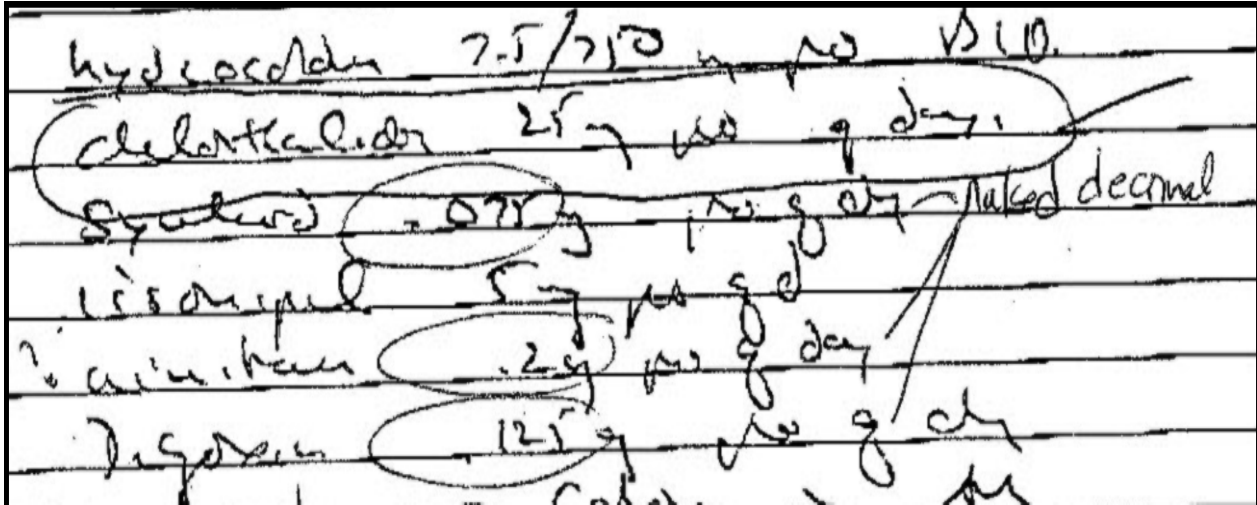 hydrocodone 7.5/750 mg po BID.
chlorthalidone 25 mg po q day.
Synthroid .075 mg po q day naked decimal
lisinopril 5 mg po q d
.2 mg po q day
Digoxin .125 mg po q day